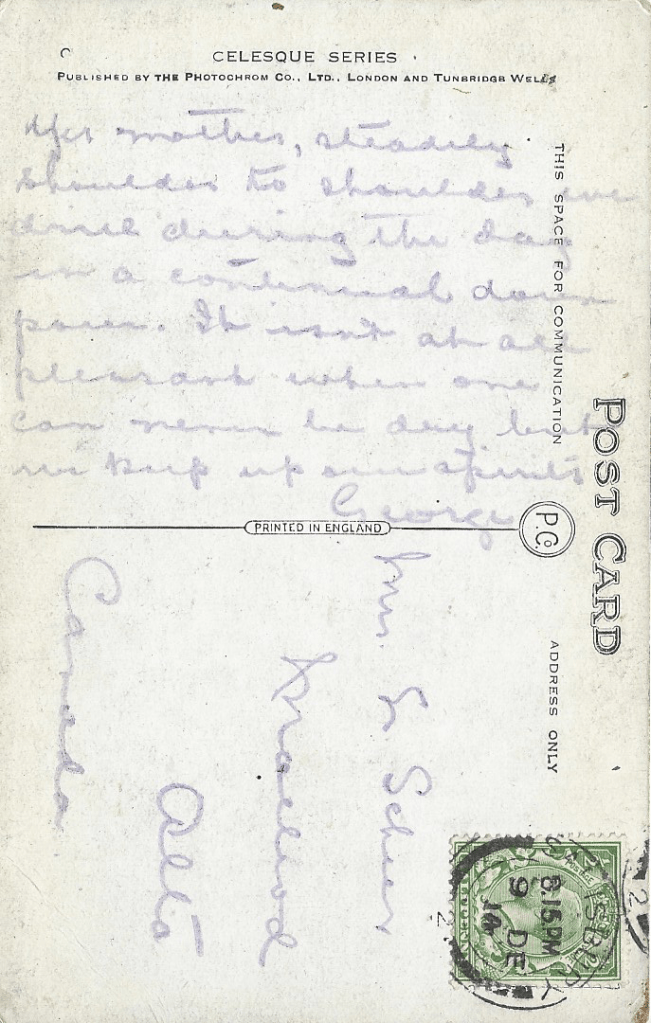 CELESQUE SERIES
PUBLISHED BY THE PHOTOCHROM CO., LTD., LONDON AND TUNBRIDGE WELLS
Yes mother, steadily
shoulder to shoulder we
drill during the day
in a continual down
pour. It isn't at all
pleasant when one
can never be dry but
we keep up our spirits
George
THIS SPACE FOR COMMUNICATION
POST CARD
P.Co.
PRINTED IN ENGLAND
ADDRESS ONLY
Mrs. G Scheer
Knoselwood
Alta
Canada
SALISBURY
8.15PM
9 DE
14
2